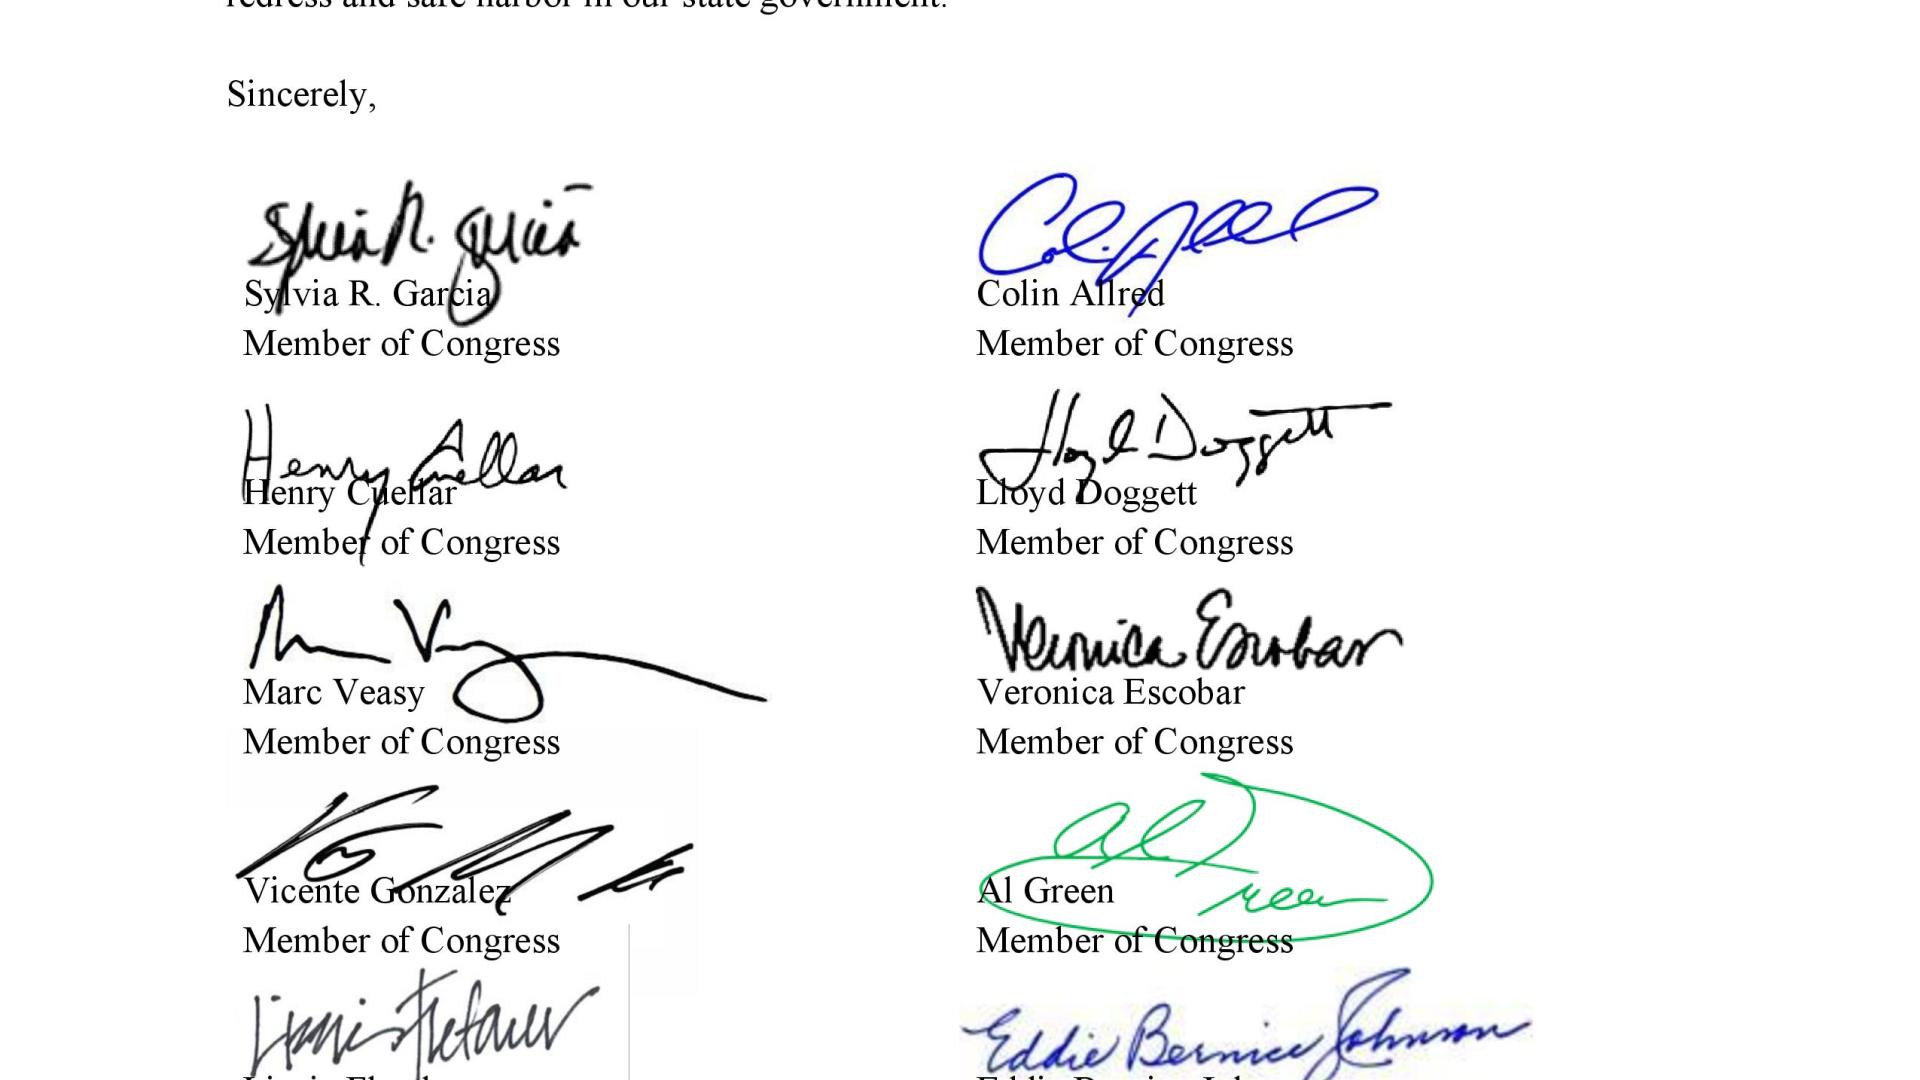 redress and safe harbor in our state government.
Sincerely,
Sylvia R. Garcia
Colin Allred
Sylvia R. Garcia
Colin Allred
Member of Congress
Member of Congress
Henry Cuellar
Lloyd Doggett
Henry Cuellar
Lloyd Doggett
Member of Congress
Member of Congress
Veronica Escobar
Marc Veasy
Veronica Escobar
Member of Congress
Member of Congress
Al Green
Vicente Gonzalez
Al Green
Member of Congress
Member of Congress
Eddie Bernice Johnson